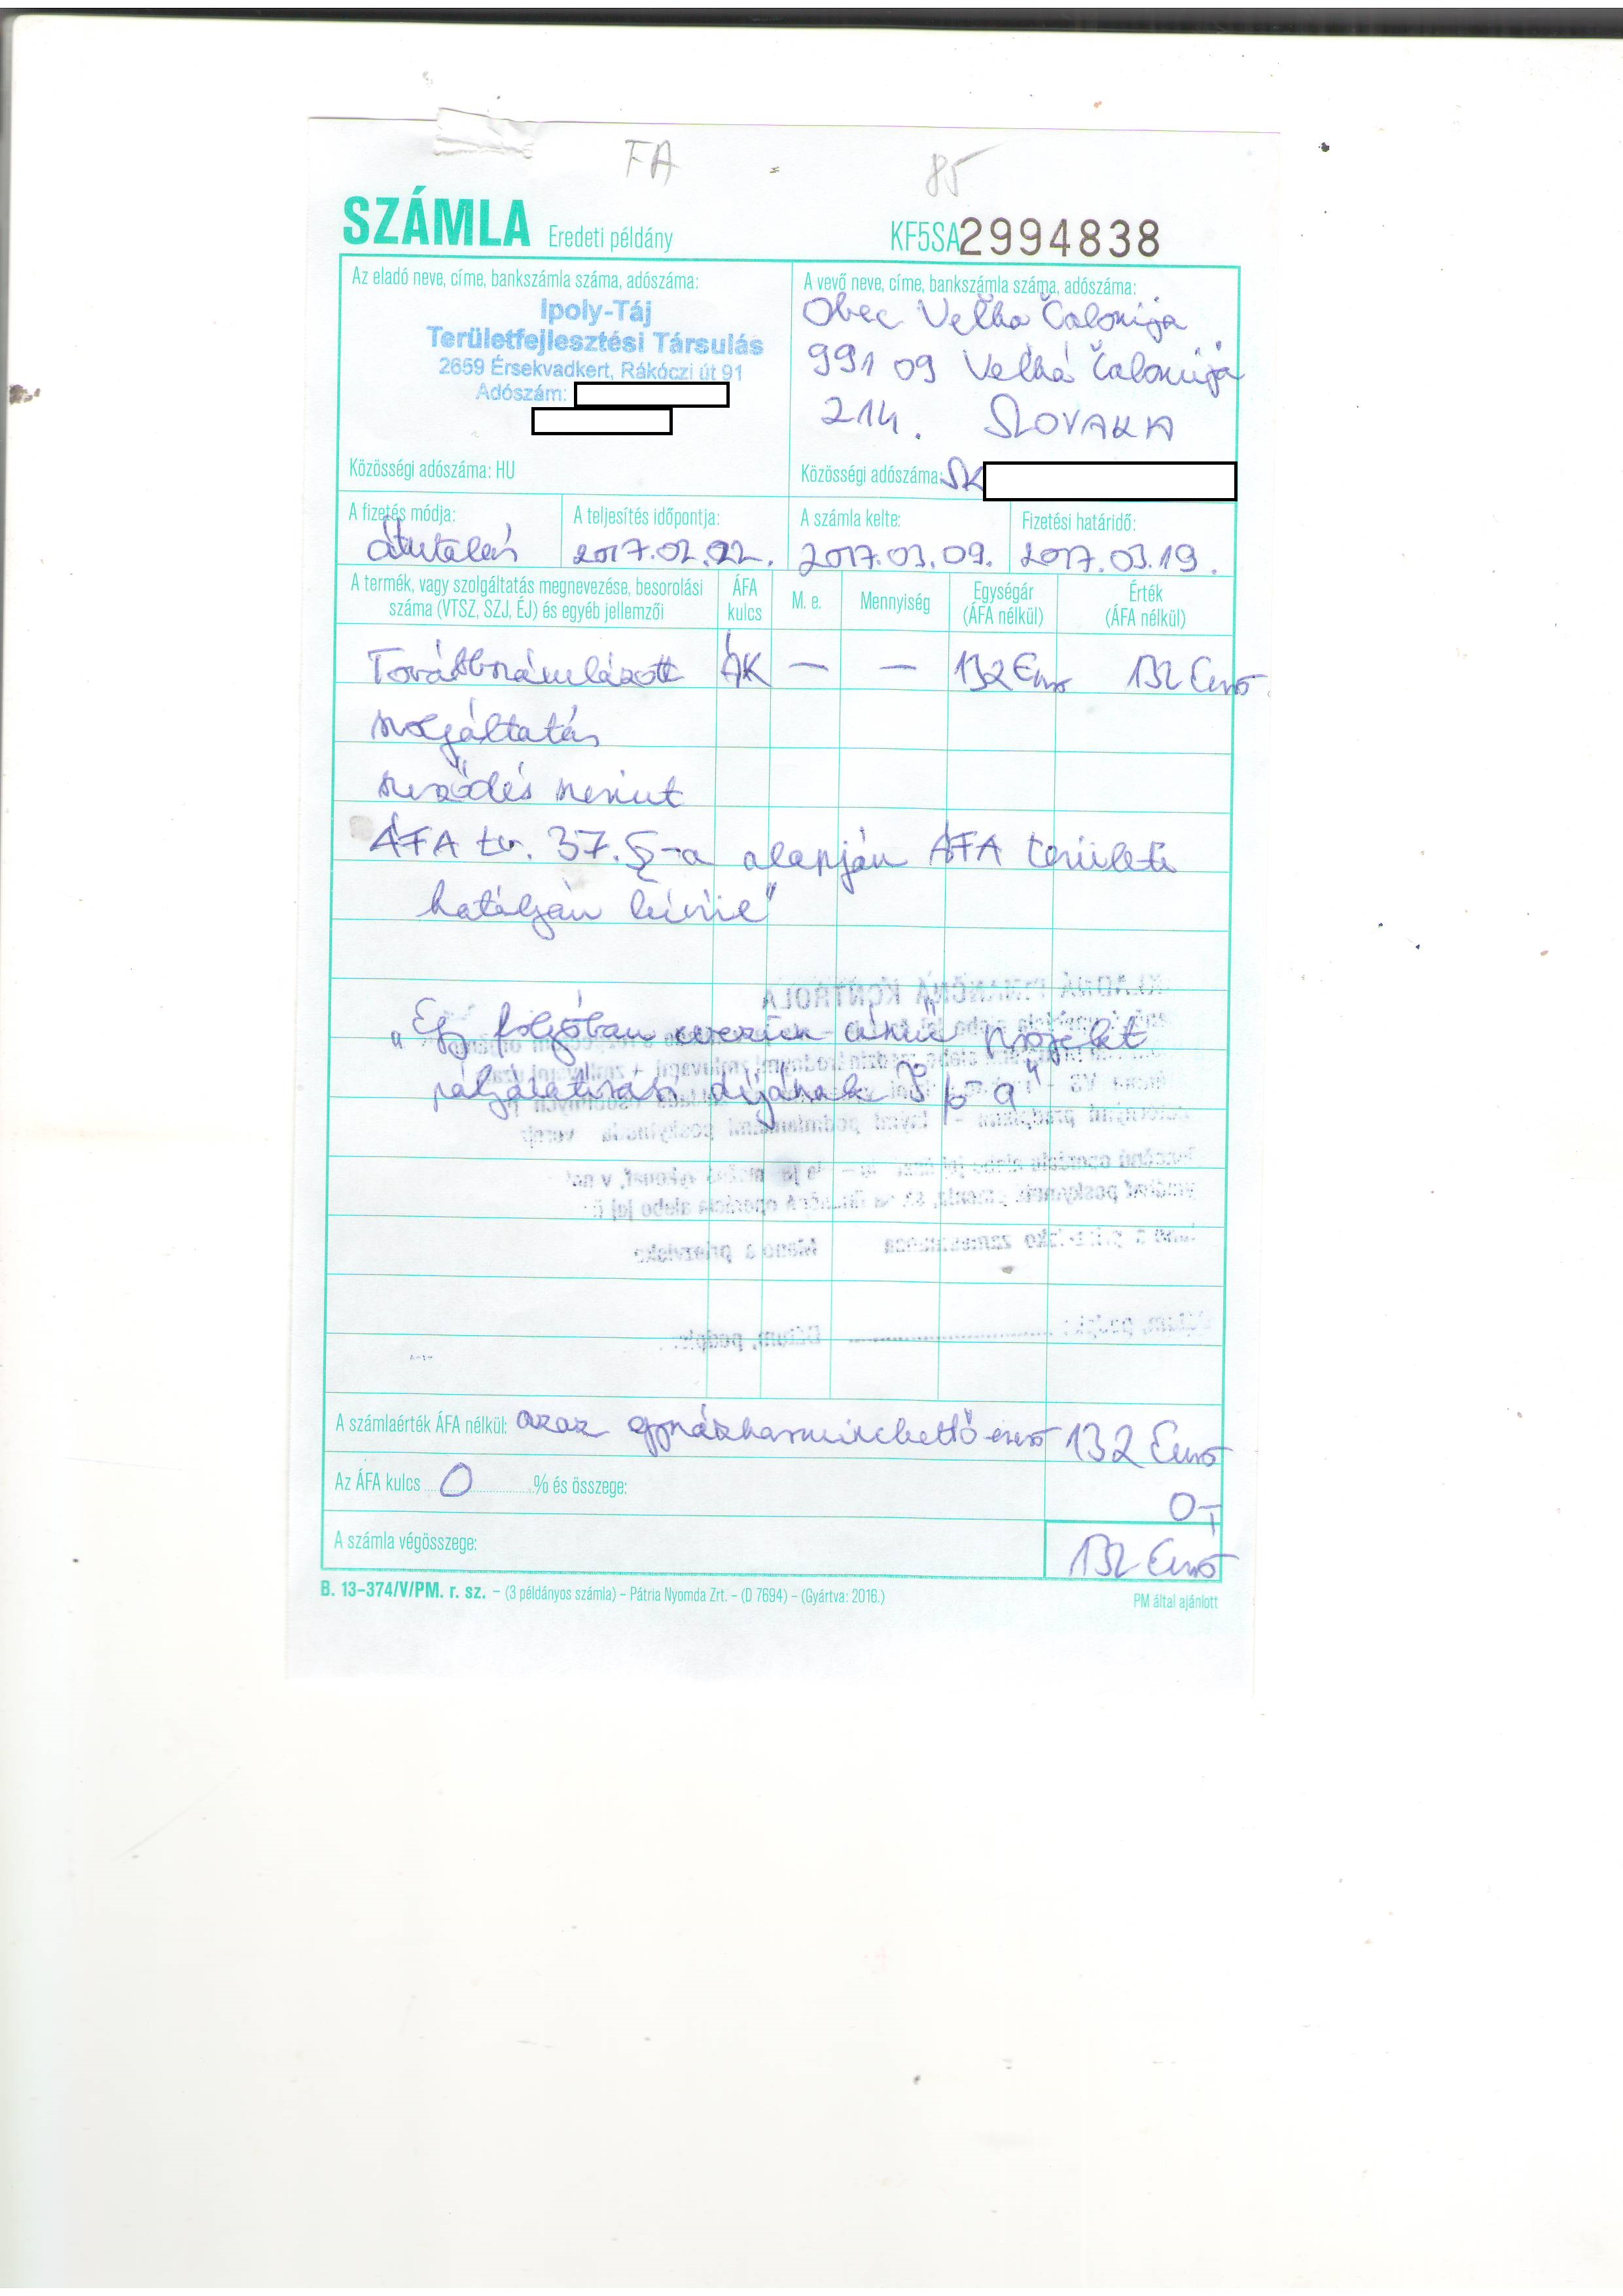 FA - 85
SZÁMLA Eredeti példány KF5SA2994838
Az eladó neve, címe, bankszámla száma, adószáma:
Ipoly-Táj
Területfejlesztési Társulás
2659 Érsekvadkert, Rákóczi út 91
Adószám:
Közösségi adószáma: HU
A vevő neve, címe, bankszámla száma, adószáma:
Obec Veľka Čalomija
991 09 Veľká Čalomija
214. SLOVAKIA
Közösségi adószáma: SK
A fizetés módja: A teljesítés időpontja: A számla kelte: Fizetési határidő:
átutalás 2017.02.22. 2017.03.09. 2017.03.19.
A termék, vagy szolgáltatás megnevezése, besorolási száma (VTSZ, SZJ, ÉJ) és egyéb jellemzői
ÁFA kulcs
M. e.
Mennyiség
Egységár (ÁFA nélkül)
Érték (ÁFA nélkül)
Továbbszámlázott ÁK — — 132 Euro 132 Euro
szolgáltatás
szerződés szerint
ÁFA tv. 37.§-a alapján ÁFA területi
hatályán kívüli"
„Egy folyóban evezünk projekt
pályázatírási díjának
A számlaérték ÁFA nélkül: azaz egyszázharminckettő euro 132 Euro
Az ÁFA kulcs 0 % és összege: 0-,
A számla végösszege: 132 Euro
B. 13–374/V/PM. r. sz. – (3 példányos számla) – Pátria Nyomda Zrt. – (D 7694) – (Gyártva: 2016.) PM által ajánlott